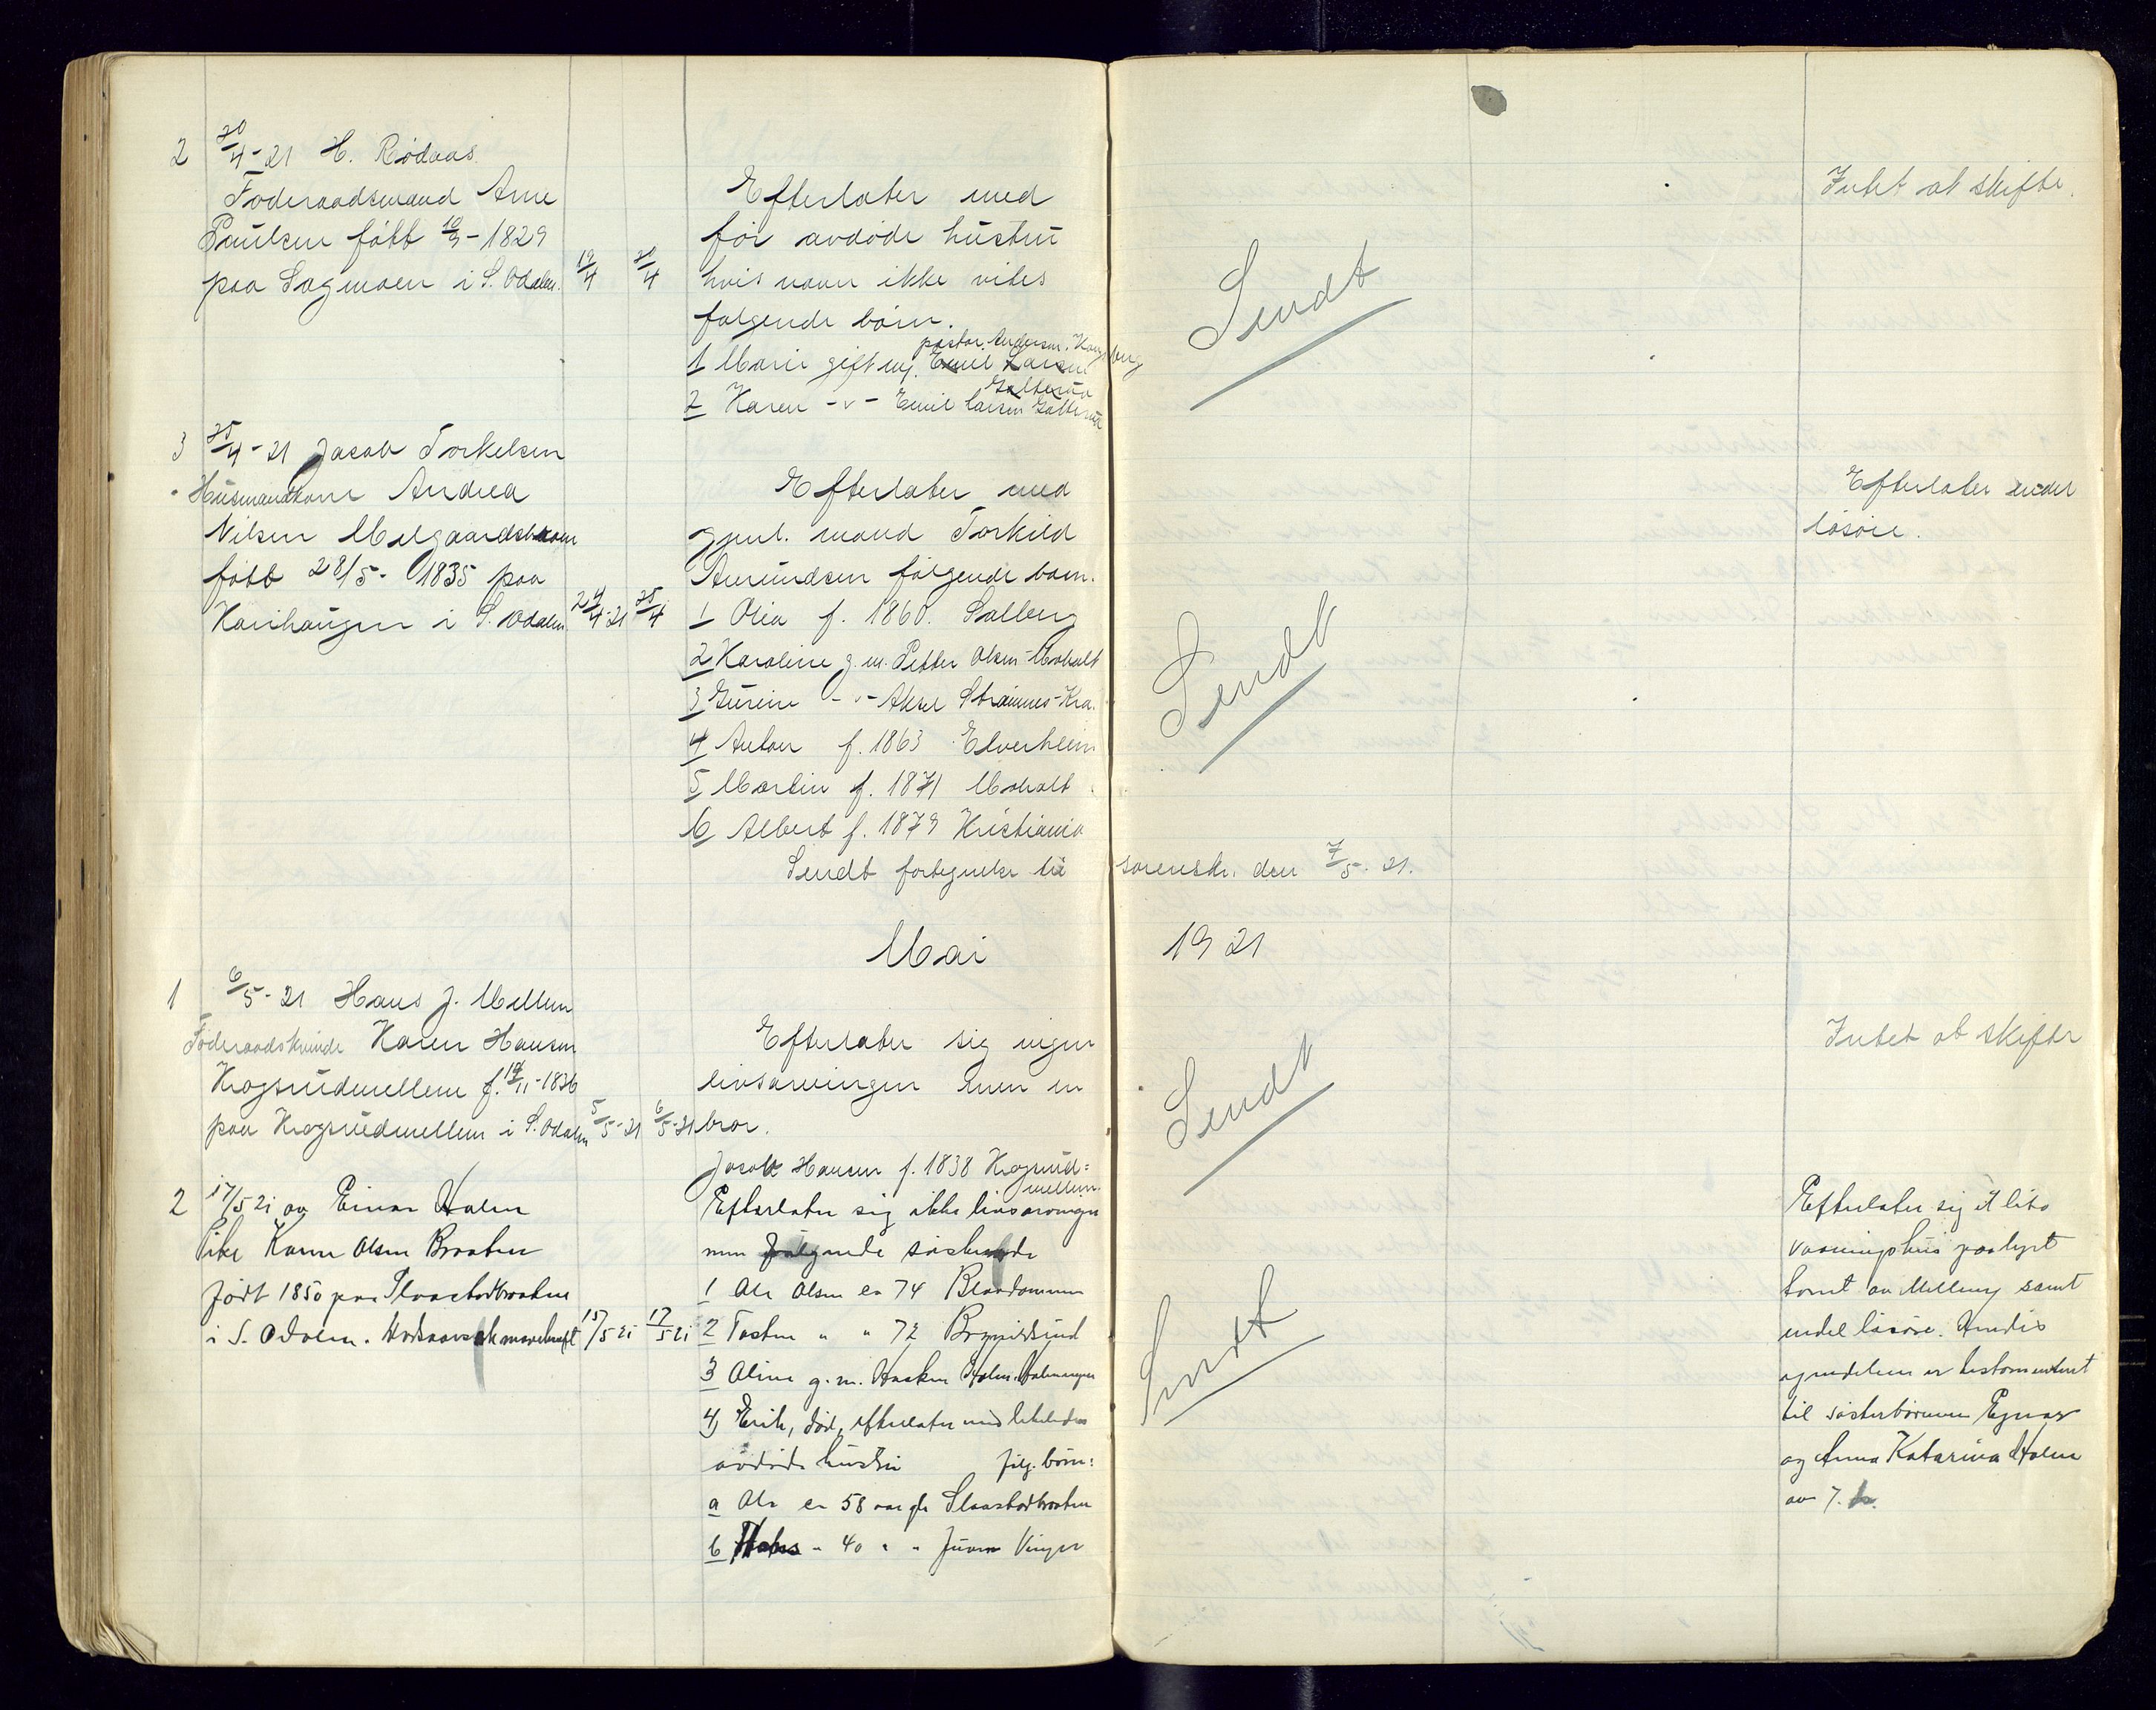 2 20/4-21 H. Rødaas
Føderaadsmand Arne
Paulsen født 10/9-1829
paa Sagmoen i S. Odalen. 19/4 20/4
Efterlater med
før avdøde hustru
hvis navn ikke vites
følgende børn.
pastor Andersen. Kongsberg
1 Marie gift m/. Emil Larsen
Galterud
2 Karen -"- Emil Larsen Galterud
Sendt
Intet at skifte.
3 25/4-21 Jacob Torkelsen
Husmandkone Andrea
Nilsen Melgaards
født 28/5-1835 paa
Karihaugen i S. Odalen. 24/4-21 25/4
Efterlater med
gjenl. mand Torkild
Amundsen følgende børn.
1 Olia f. 1860. Solberg
2 Karoline g.m. Petter Olsen Moholt
3 Gurine -"- Aksel Strømnes-Kra.
4 Anton f. 1863 Elverheim
5 Martin f. 1871 Moholt
6 Albert f. 1879 Kristiania
Sendt fortegnelse til sorenskr. den 7/5-21.
Sendt
Efterlater endel
løsøre.
Mai 1921
1 6/5-21 Hans J. Mellem
Føderaadskvinde Karen Hansen
Krogsrudmellem f. 19/11-1836
paa Krogsrudmellem i S. Odalen 5/5-21 6/5-21
Efterlater sig ingen
livsarvinger men en
bror.
Jacob Hansen f. 1838 Krogsrud=
mellem.
Sendt
Intet at skifte
2 17/5 21 av Einar Holm
Pike Karen Olsen Braaten
født 1850 paa Slaastadbraaten
i S. Odalen. 15/5 21 17/5 21
Efterlater sig ikke livsarvinger
men følgende søskende
1 Ole Olsen er 74
2 Torsten " " 72 Brynildsrud
3 Oline g.m. Haaken Holm
4, Erik, død, efterlater med likeledes
avdøde hustru følg. børn:
a Ole er 58 aar gl Slaastadbraaten
b " 40 " " Vinger
Sendt
Efterlater sig et lite
vaaningshus paa lyst
tomt av Mellem samt
endel løsøre. Hendes
eiendelene er testamenteret
til søsterbørnene Einar
og Anna Katarina Holm
av 7.